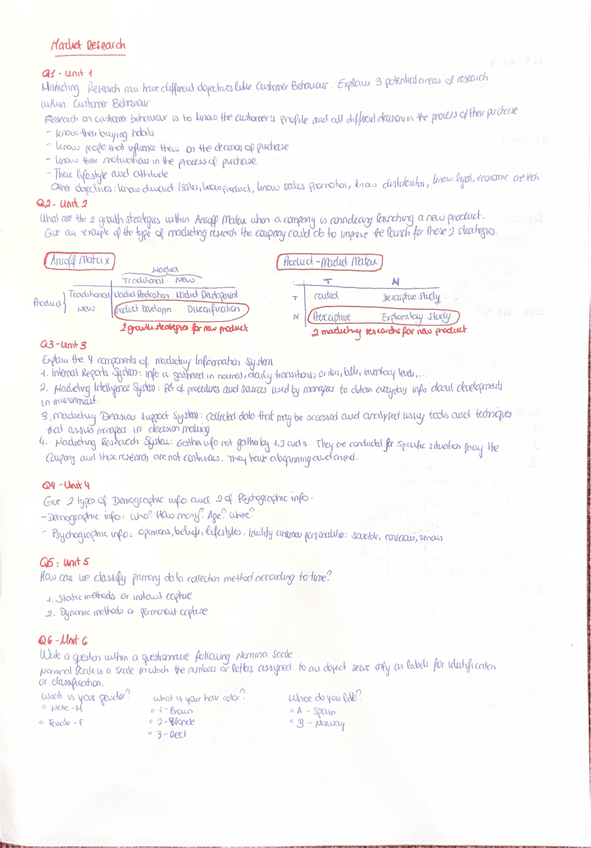 Market Research
Q1 - Unit 1
Marketing Research can have different objectives like Customer Behaviour. Explain 3 potential areas of research
within Customer Behaviour
Research on customer behaviour is to know the customer's profile and all different decision in the process of their purchase
- Know their buying habits
- Know people that influence them on the decision of purchase
- Know their motivations in the process of purchase
- Their lifestyle and attitude
Other objectives: Know demand / sales, know product, know sales promotion, know distribution, know legal, economic and tech
Q2 - Unit 2
What are the 2 growth strategies within Ansoff Matrix when a company is considering launching a new product.
Give an example of the type of marketing research the company could do to improve the launch for these 2 strategies.
Ansoff Matrix
Product - Market Matrix
Market
Traditional New
T N
Product Traditional Market Penetration Market Development
T Control Descriptive study
New Product Developm Diversification
N Descriptive Exploratory study
2 growth strategies for new product
2 marketing researchs for new product
Q3 - Unit 3
Explain the 4 components of Marketing Information System
1. Internal Reports System: info is gathered in normal, daily transitions, orders, bills, inventory levels, ...
2. Marketing Intelligence System: Set of procedures and sources used by managers to obtain everyday info about developments
in environment.
3. Marketing Decision Support System: Collected data that may be accessed and analysed using tools and techniques
that assists managers in decision making
4. Marketing Research System: Gather info not gather by 1, 2 and 3. They are conducted for specific situation facing the
company and these research are not continues. They have a beginning and an end.
Q4 - Unit 4
Give 2 types of Demographic info and 2 of Psychographic info.
- Demographic info: Who? How many? Age? Where?
- Psychographic info: opinions, beliefs, lifestyles. Identify consumer personalities: sociable, nervous
Q5: Unit 5
How can we classify primary data collection method according to time?
1. Static methods or instant capture
2. Dynamic methods or permanent capture
Q6 - Unit 6
Write a question within a questionnaire following Nominal Scale
Nominal Scale is a scale in which the numbers or letters assigned to an object serve only as labels for identification
or classification.
What is your gender? What is your hair color? Where do you live?
○ Male - M ○ 1 - Brown ○ A - Spain
○ Female - F ○ 2 - Blonde ○ B - Norway
○ 3 - Red